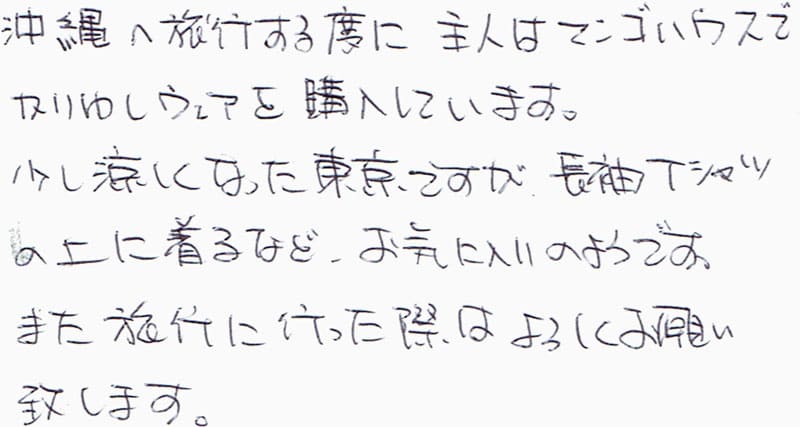 沖縄へ旅行する度に 主人はマンゴハウスで
かりゆしウェアを購入しています。
少し涼しくなった東京ですが、長袖Tシャツ
の上に着るなど、お気に入りのようです。
また旅行に行った際はよろしくお願い
致します。